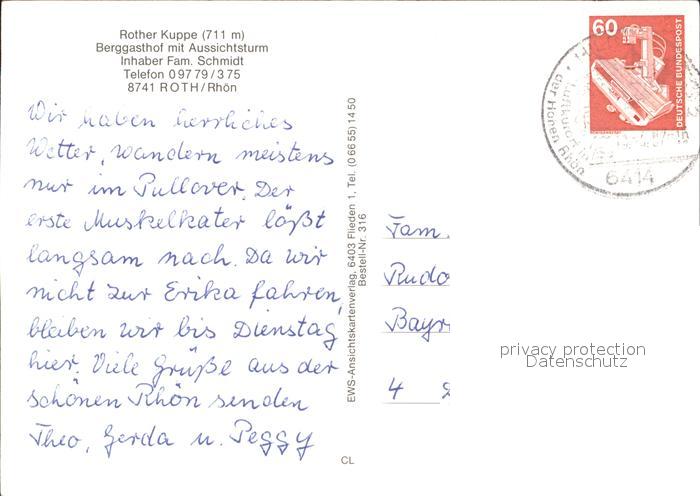 Rother Kuppe (711 m)
Berggasthof mit Aussichtsturm
Inhaber Fam. Schmidt
Telefon 0 97 79 / 3 75
8741 ROTH/Rhön
Wir haben herrliches
Wetter, wandern meistens
nur im Pullover. Der
erste Muskelkater läßt
langsam nach. Da wir
nicht zur Erika fahren,
bleiben wir bis Dienstag
hier. Viele Grüße aus der
schönen Rhön senden
Theo, Gerda u. Peggy
EWS-Ansichtskartenverlag, 6403 Flieden 1, Tel. (0 66 55) 14 50
Bestell-Nr. 316
CL
60
DEUTSCHE BUNDESPOST
Luftkurort
der Hohen Rhön
6414
Fam.
Rudo
Bayr
4
privacy protection
Datenschutz